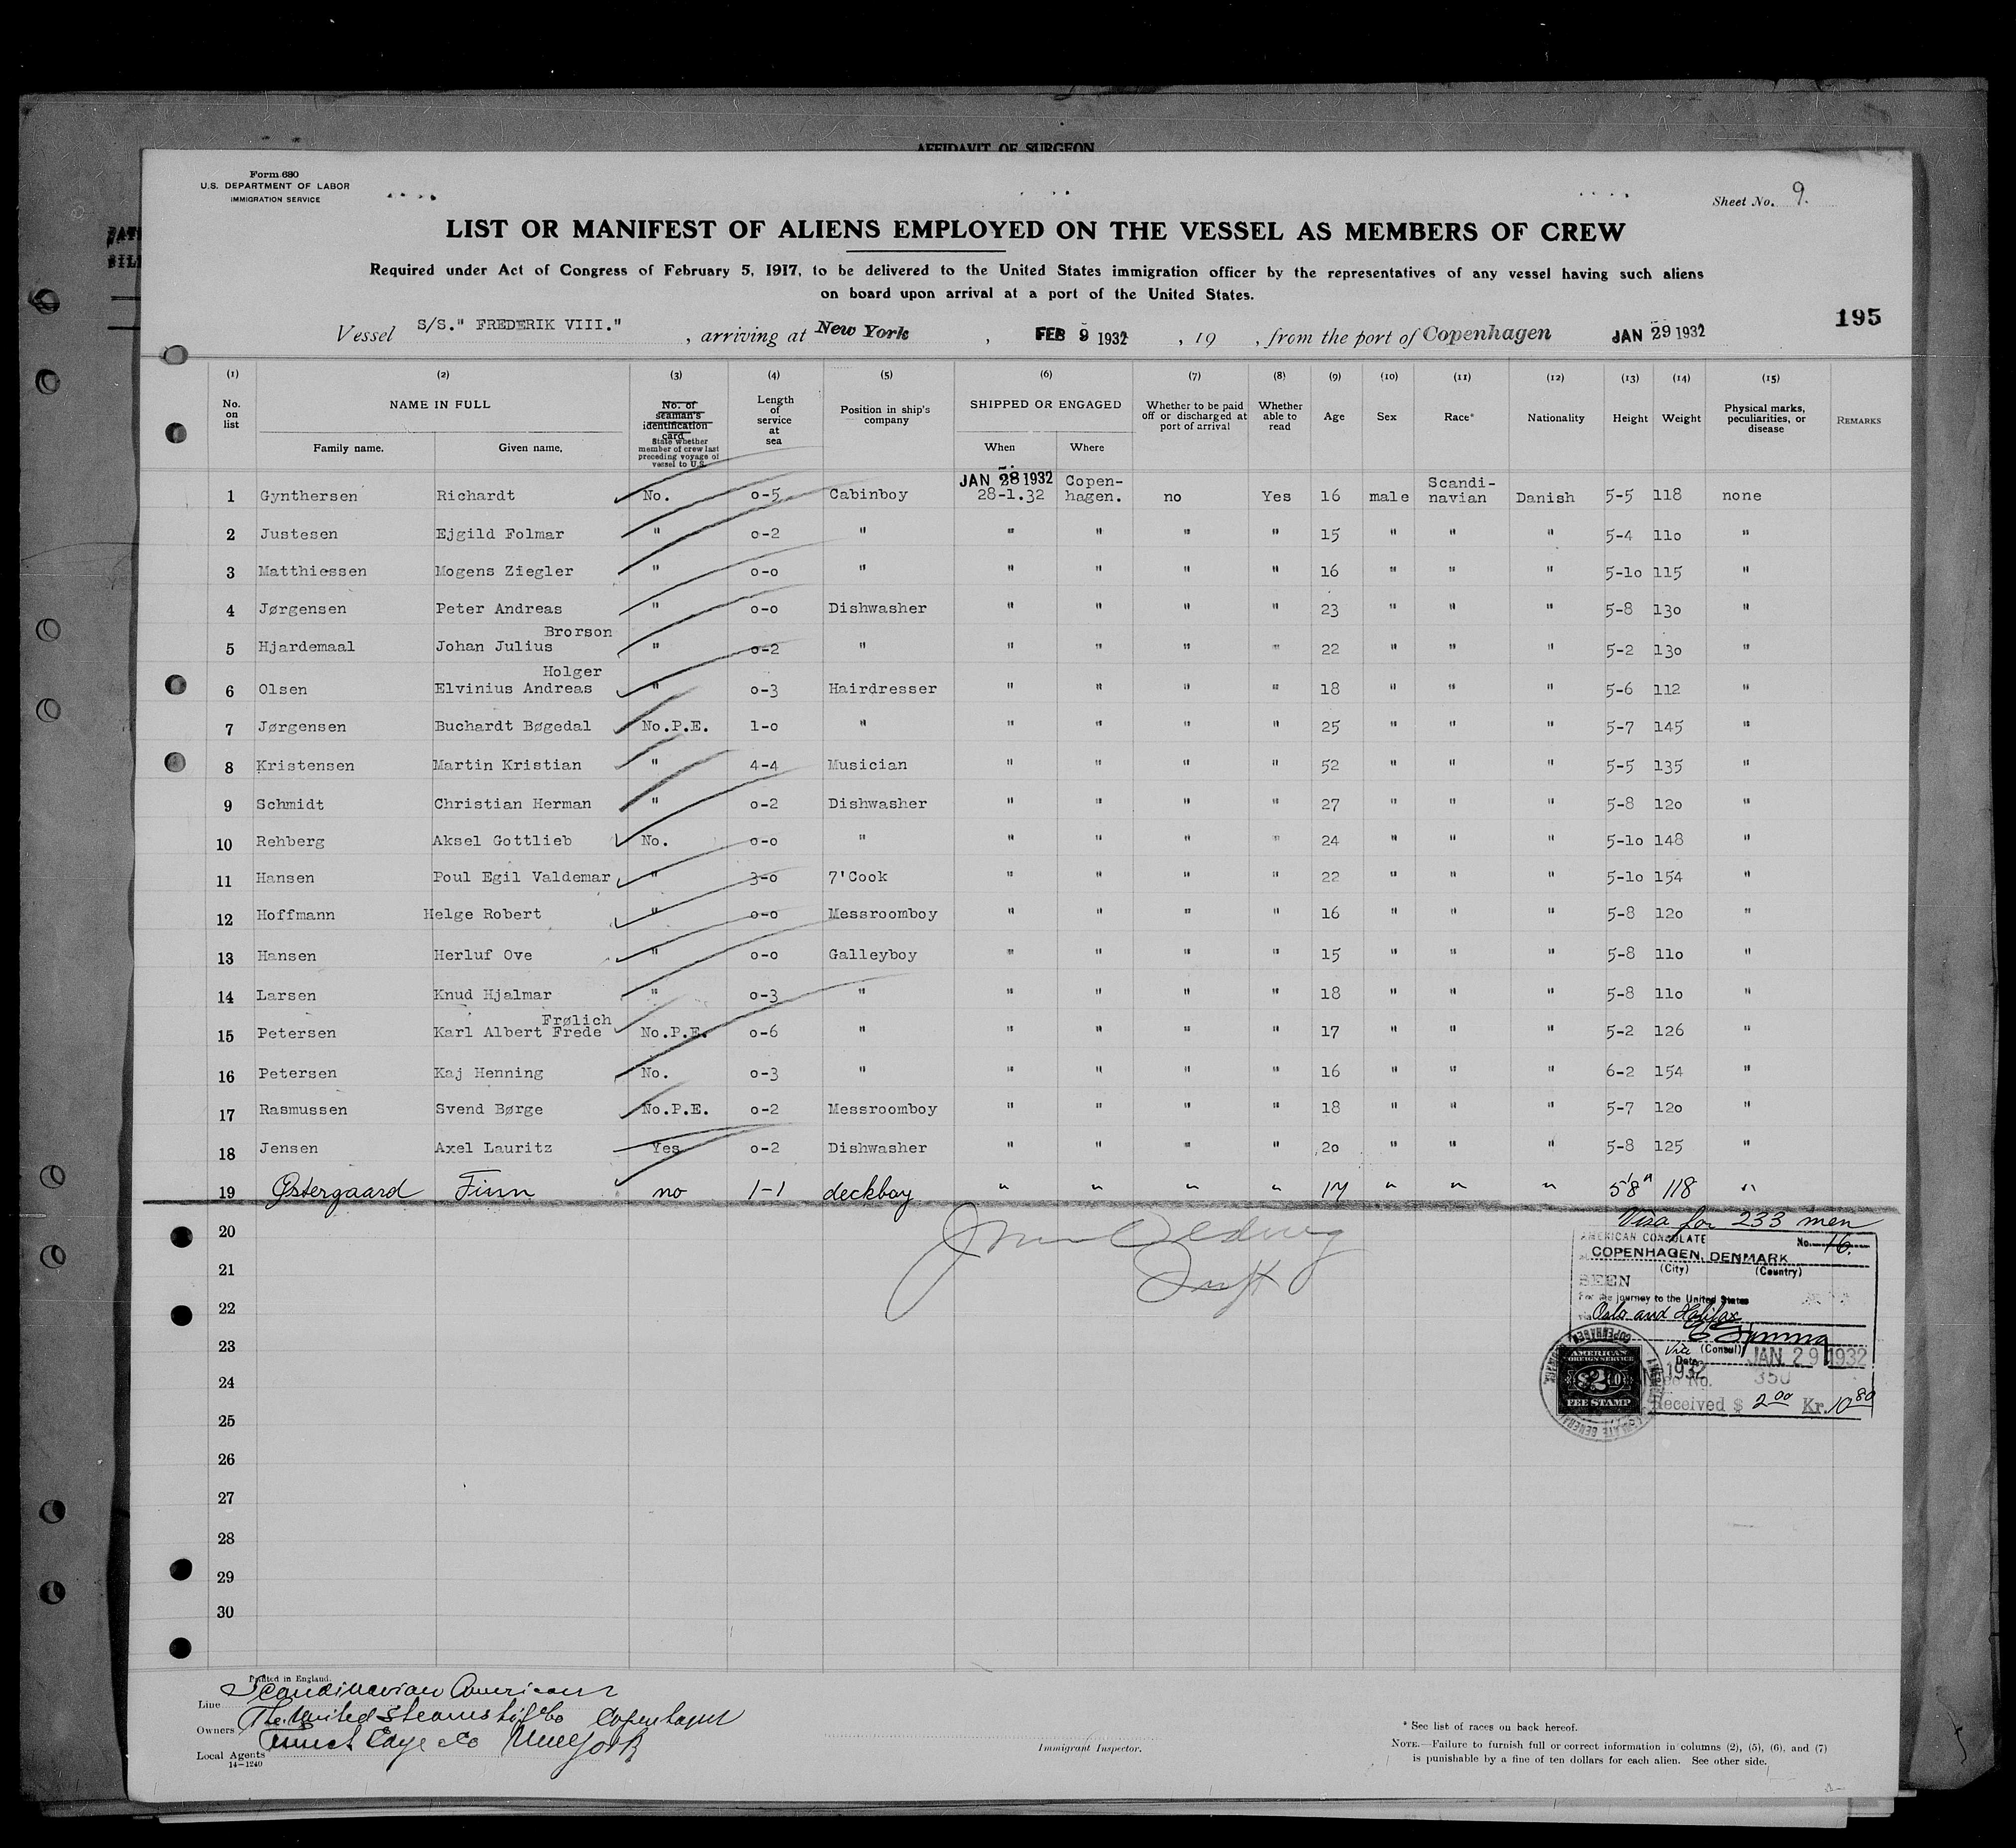 AFFIDAVIT OF SURGEON
Form 680
U.S. DEPARTMENT OF LABOR
IMMIGRATION SERVICE
Sheet No. 9.
LIST OR MANIFEST OF ALIENS EMPLOYED ON THE VESSEL AS MEMBERS OF CREW
Required under Act of Congress of February 5, 1917, to be delivered to the United States immigration officer by the representatives of any vessel having such aliens
on board upon arrival at a port of the United States.
195
Vessel S/S." FREDERIK VIII." , arriving at New York , FEB 9 1932 , 19 , from the port of Copenhagen JAN 29 1932
(1) (2) (3) (4) (5) (6) (7) (8) (9) (10) (11) (12) (13) (14) (15)
No. on list NAME IN FULL Family name. Given name. No. of seaman's identification card State whether member of crew last preceding voyage of vessel to U.S. Length of service at sea Position in ship's company SHIPPED OR ENGAGED When Where Whether to be paid off or discharged at port of arrival Whether able to read Age Sex Race* Nationality Height Weight Physical marks, peculiarities, or disease REMARKS
JAN 28 1932
1 Gynthersen Richardt No. 0-5 Cabinboy 28-1.32 Copen-hagen. no Yes 16 male Scandi-navian Danish 5-5 118 none
2 Justesen Ejgild Folmar " 0-2 " " " " " 15 " " " 5-4 110 "
3 Matthiessen Mogens Ziegler " 0-0 " " " " " 16 " " " 5-10 115 "
4 Jørgensen Peter Andreas " 0-0 Dishwasher " " " " 23 " " " 5-8 130 "
Brorson
5 Hjardemaal Johan Julius " 0-2 " " " " " 22 " " " 5-2 130 "
Holger
6 Olsen Elvinius Andreas " 0-3 Hairdresser " " " " 18 " " " 5-6 112 "
7 Jørgensen Buchardt Bøgedal No.P.E. 1-0 " " " " " 25 " " " 5-7 145 "
8 Kristensen Martin Kristian " 4-4 Musician " " " " 52 " " " 5-5 135 "
9 Schmidt Christian Herman " 0-2 Dishwasher " " " " 27 " " " 5-8 120 "
10 Rehberg Aksel Gottlieb No. 0-0 " " " " " 24 " " " 5-10 148 "
11 Hansen Poul Egil Valdemar " 3-0 7'Cook " " " " 22 " " " 5-10 154 "
12 Hoffmann Helge Robert " 0-0 Messroomboy " " " " 16 " " " 5-8 120 "
13 Hansen Herluf Ove " 0-0 Galleyboy " " " " 15 " " " 5-8 110 "
14 Larsen Knud Hjalmar " 0-3 " " " " " 18 " " " 5-8 110 "
Frølich
15 Petersen Karl Albert Frede No.P.E. 0-6 " " " " " 17 " " " 5-2 126 "
16 Petersen Kaj Henning No. 0-3 " " " " " 16 " " " 6-2 154 "
17 Rasmussen Svend Børge No.P.E. 0-2 Messroomboy " " " " 18 " " " 5-7 120 "
18 Jensen Axel Lauritz Yes 0-2 Dishwasher " " " " 20 " " " 5-8 125 "
19 Østergaard Finn no 1-1 deckboy " " " " 17 " " " 5'8" 118 "
20
21
22
23
24
25
26
27
28
29
30
Visa for 233 men
AMERICAN CONSULATE No. 16.
COPENHAGEN, DENMARK
(City) (Country)
SEEN
For the journey to the United States
via Oslo and Halifax
Vice (Consul)
Date JAN. 29 1932
1932
Fee No. 350
Received $ 2.00 Kr. 10.80
AMERICAN
FOREIGN SERVICE
$2.00
FEE STAMP
Printed in England.
Line Scandinavian American
Owners The United Steamship Co Copenhagen
Local Agents Funch Edye & Co New York
14—1240
Immigrant Inspector.
* See list of races on back hereof.
NOTE.—Failure to furnish full or correct information in columns (2), (5), (6), and (7)
is punishable by a fine of ten dollars for each alien. See other side.